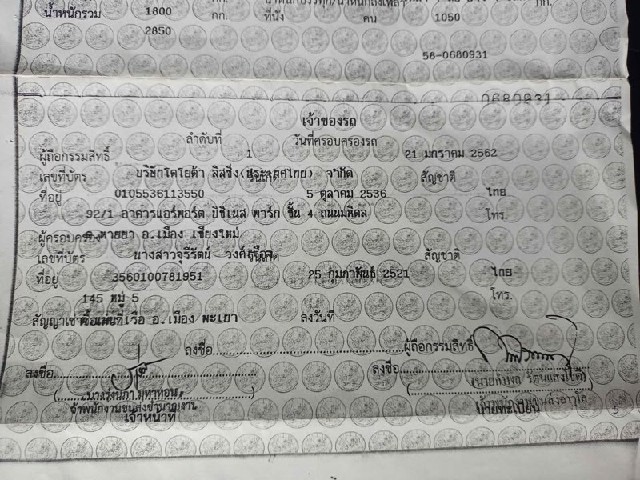 น้ำหนักรวม 1800 กก. ที่นั่ง คน 1050 กก.
2850
56-0680931
0680931
เจ้าของรถ
ลำดับที่ 1 วันที่ครอบครองรถ 21 มกราคม 2562
ผู้ถือกรรมสิทธิ์ บริษัทโตโยต้า ลีสซิ่ง(ประเทศไทย) จำกัด
เลขที่บัตร 0105536113550 5 ตุลาคม 2536 สัญชาติ ไทย
ที่อยู่ 92/1 อาคารแอร์พอร์ต บิซิเนส พาร์ก ชั้น 4 ถนนมหิดล โทร.
ต.หายยา อ.เมือง เชียงใหม่
ผู้ครอบครอง นางสาวจุรีรัตน์
เลขที่บัตร 3560100781951 25 กุมภาพันธ์ 2521 สัญชาติ ไทย
ที่อยู่ 145 หมู่ 5 โทร.
สัญญาเช่าซื้อเลขที่ อ.เมือง พะเยา ลงวันที่
ลงชื่อ ผู้ถือกรรมสิทธิ์
ลงชื่อ ลงชื่อ
เจ้าพนักงานขนส่งชำนาญงาน
เจ้าหน้าที่ นายทะเบียน